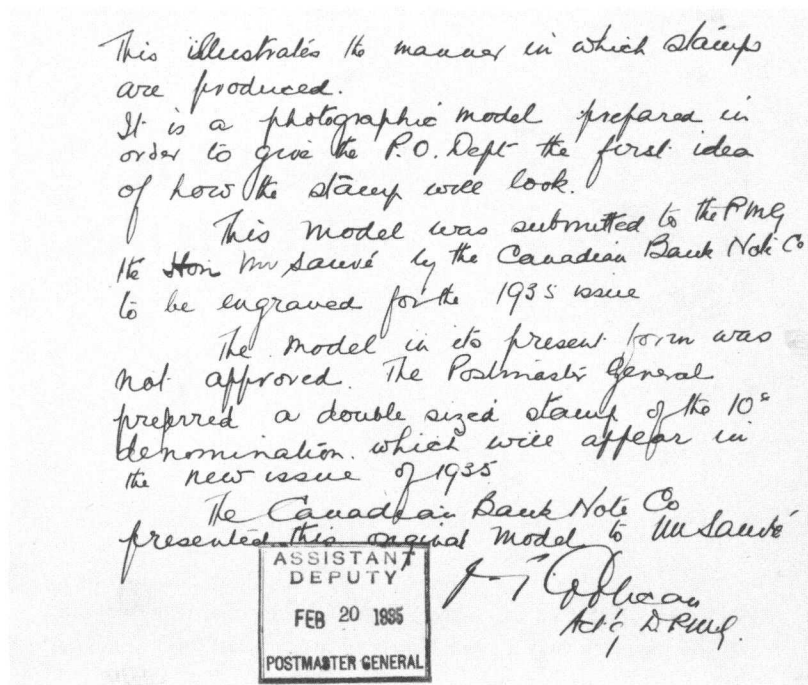 This illustrates the manner in which stamps
are produced.
It is a photographic model prepared in
order to give the P.O. Dept the first idea
of how the stamp will look.
This model was submitted to the PMG
the Hon Mr Sauvé by the Canadian Bank Note Co
to be engraved for the 1935 issue
The model in its present form was
not approved. The Postmaster General
preferred a double sized stamp of the 10c
denomination. which will appear in
the new issue of 1935
The Canadian Bank Note Co
presented this original model to Mr Sauvé
ASSISTANT
DEPUTY
FEB 20 1935
POSTMASTER GENERAL
DPMG.